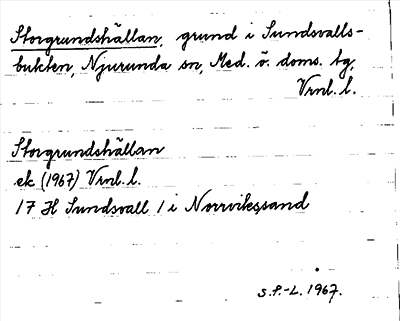 Storgrundshällan, grund i Sundsvalls-
bukten, Njurunda sn, Med. ö. doms. tg,
Vrnl. l.
Storgrundshällan
ek (1967) Vrnl. l.
17 H Sundsvall 1 i Norrvikssand
S.P.-L. 1967.